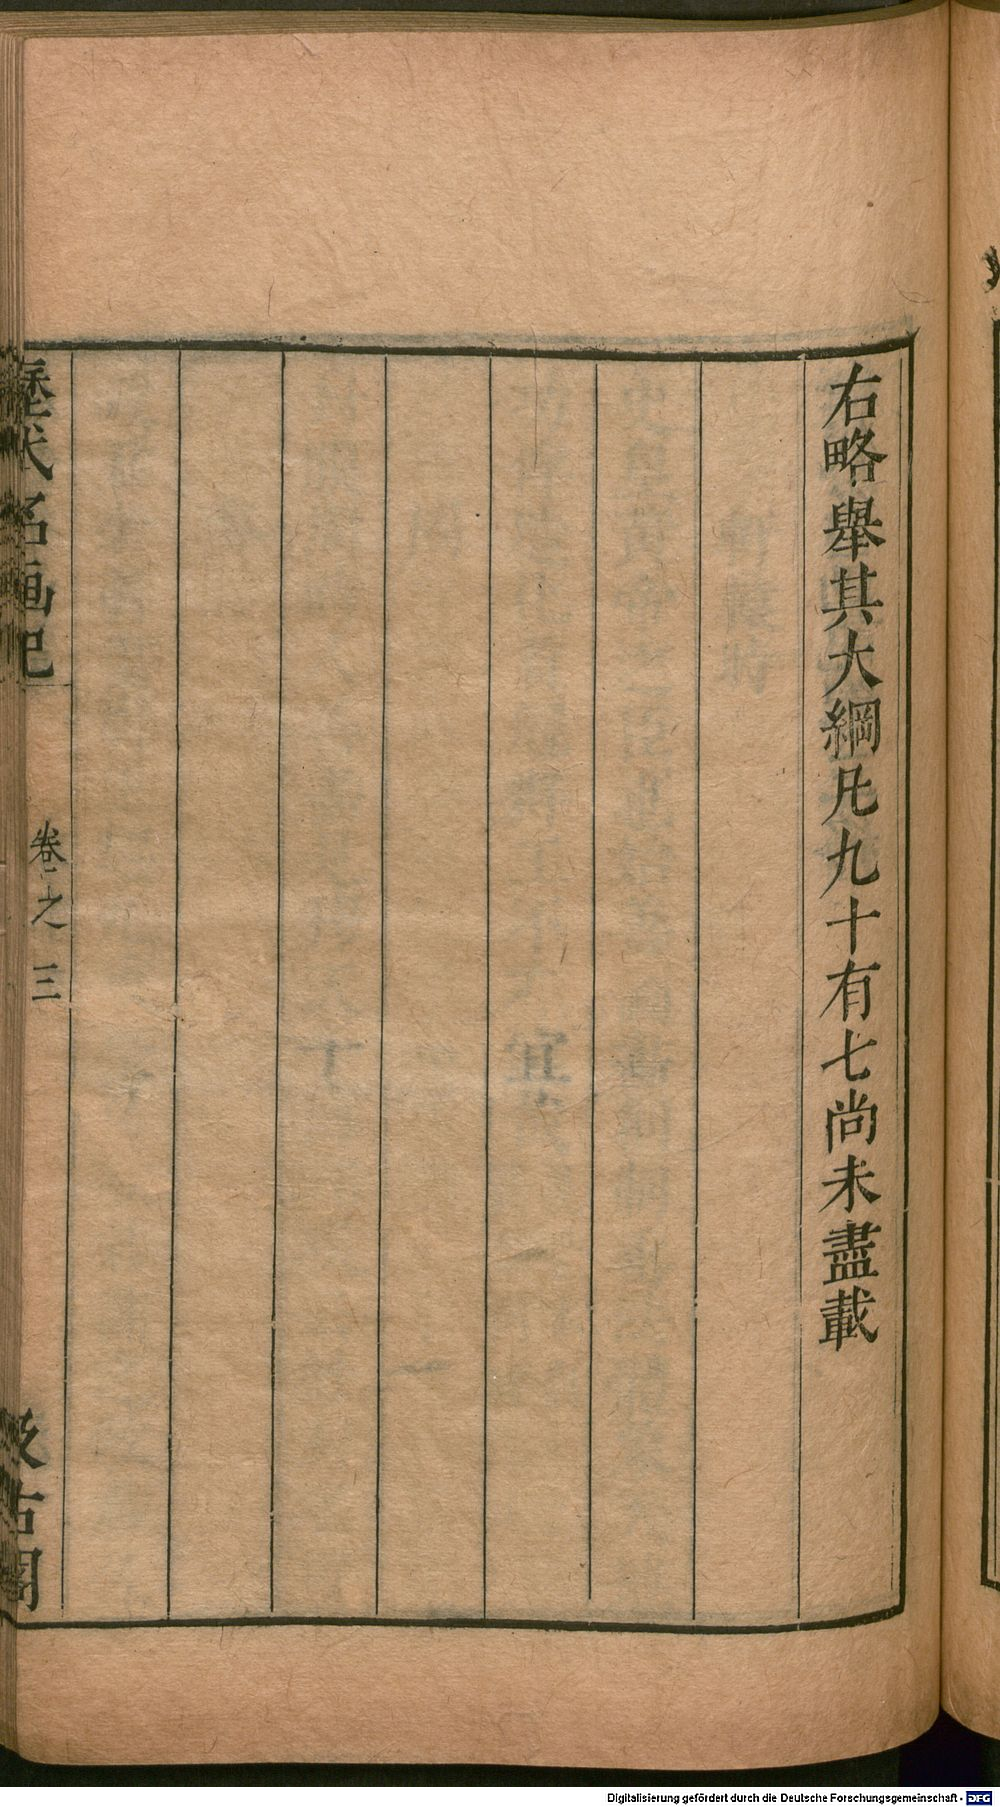 右略舉其大綱凡九十有七尚未盡載
歷代名画記
卷之三
汲古閣
Digitalisierung gefördert durch die Deutsche Forschungsgemeinschaft - DFG